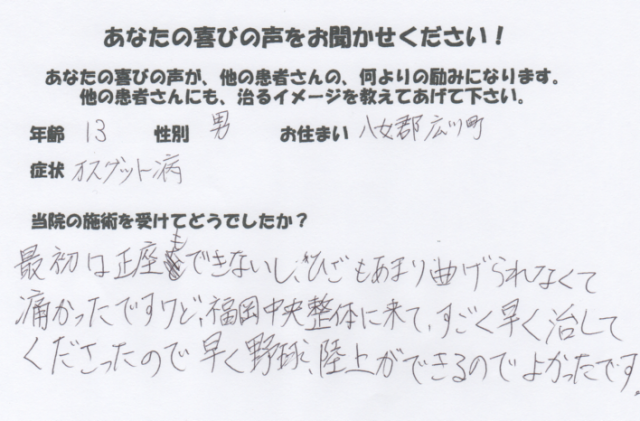 あなたの喜びの声をお聞かせください！
あなたの喜びの声が、他の患者さんの、何よりの励みになります。
他の患者さんにも、治るイメージを教えてあげて下さい。
年齢 13 性別 男 お住まい 八女郡広川町
症状 オスグット病
当院の施術を受けてどうでしたか？
最初は正座もできないし、ひざもあまり曲げられなくて
痛かったですけど、福岡中央整体に来て、すごく早く治して
くださったので早く野球、陸上ができるのでよかったです。